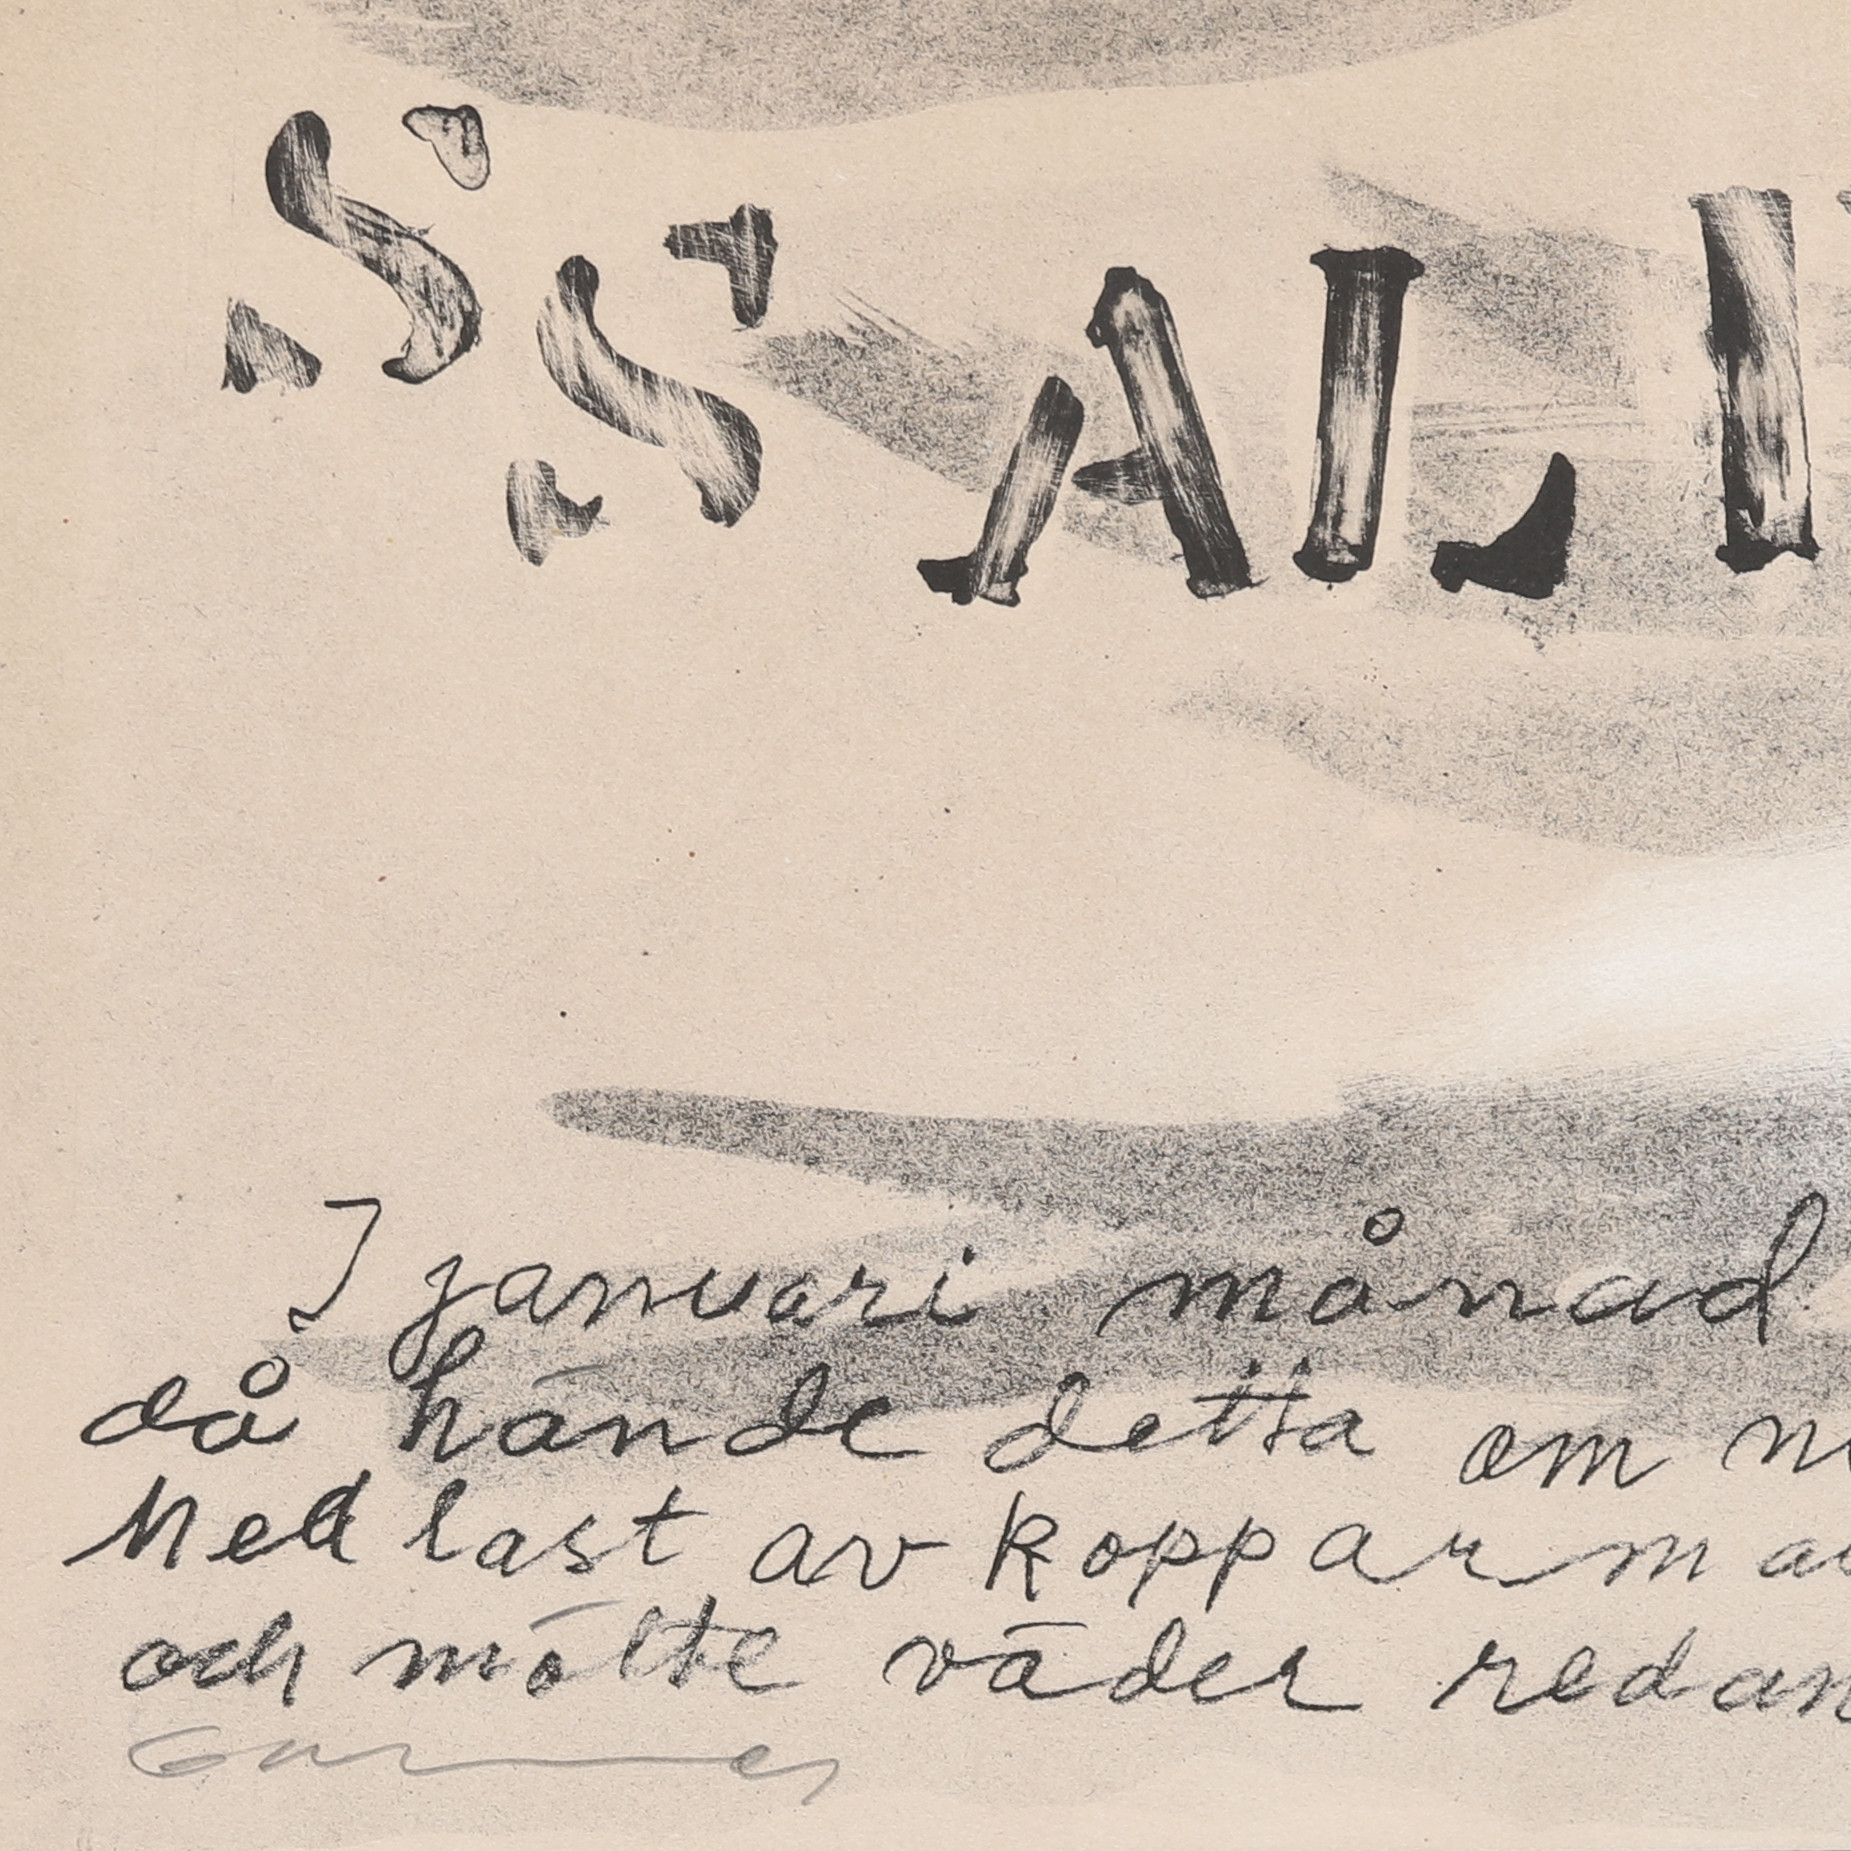 SS ALI
I januari månad
då hände detta om
Med last av kopparma
och mötte väder redan